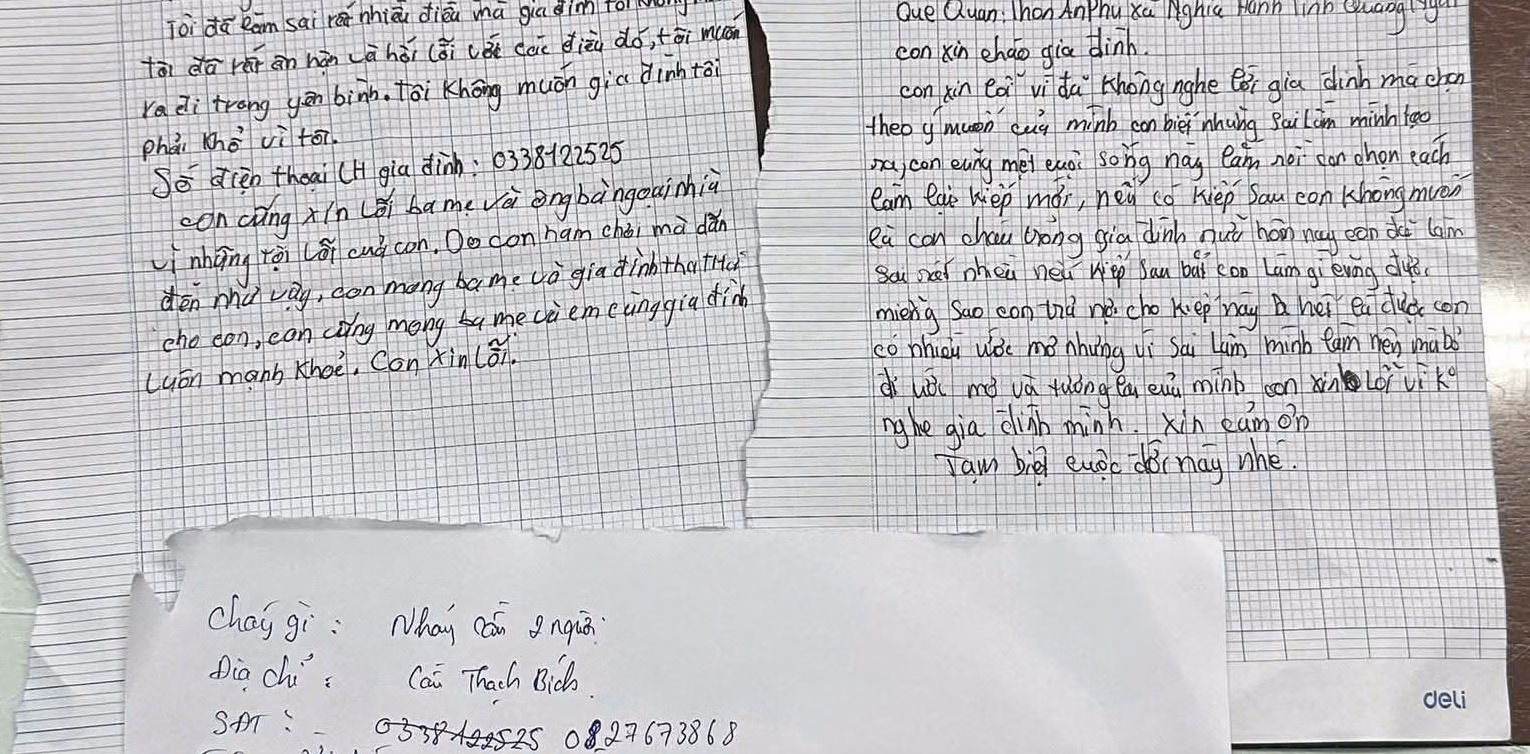 Tôi đã làm sai rất nhiều điều mà gia đình tôi không
tôi đã rất ân hận và hối lỗi với các điều đó, tôi muốn
ra đi trong yên bình. Tôi không muốn gia đình tôi
phải khổ vì tôi.
Số điện thoại LH gia đình: 0338122525
con cũng xin lỗi ba mẹ và ông bà ngoại nhiều
vì những tội lỗi của con. Do con ham chơi mà dẫn
đến như vậy, con mong ba mẹ và gia đình tha thứ
cho con, con cũng mong ba mẹ và em cùng gia đình
luôn mạnh khoẻ. Con xin lỗi.
Quê Quán: Thôn An Phú xã Nghĩa Hành Tỉnh Quảng Ngãi
con xin chào gia đình.
con xin lỗi vì đã không nghe lời gia đình mà chọn
theo ý muốn của mình con biết những sai lầm mình tạo
ra, con cũng mệt cuộc sống này lắm rồi con chọn cách
làm lại kiếp mới, nếu có kiếp sau con không muốn
là con cháu trong gia đình nữa hôm nay con đã làm
sai rất nhiều nếu kiếp sau bắt con làm gì cũng được
miễng sao con trả nợ cho kiếp này là hết là được con
có nhiều ước mơ nhưng vì sai lầm mình làm nên mà bỏ
đi ước mơ và tương lai của mình con xin lỗi vì ko
nghe gia đình mình. Xin cảm ơn
Tạm biệt cuộc đời này nhé.
Cháy gì: Nhảy cầu 2 người
Địa chỉ: Cầu Thạch Bích.
SĐT: 0338122525 0827673868
deli